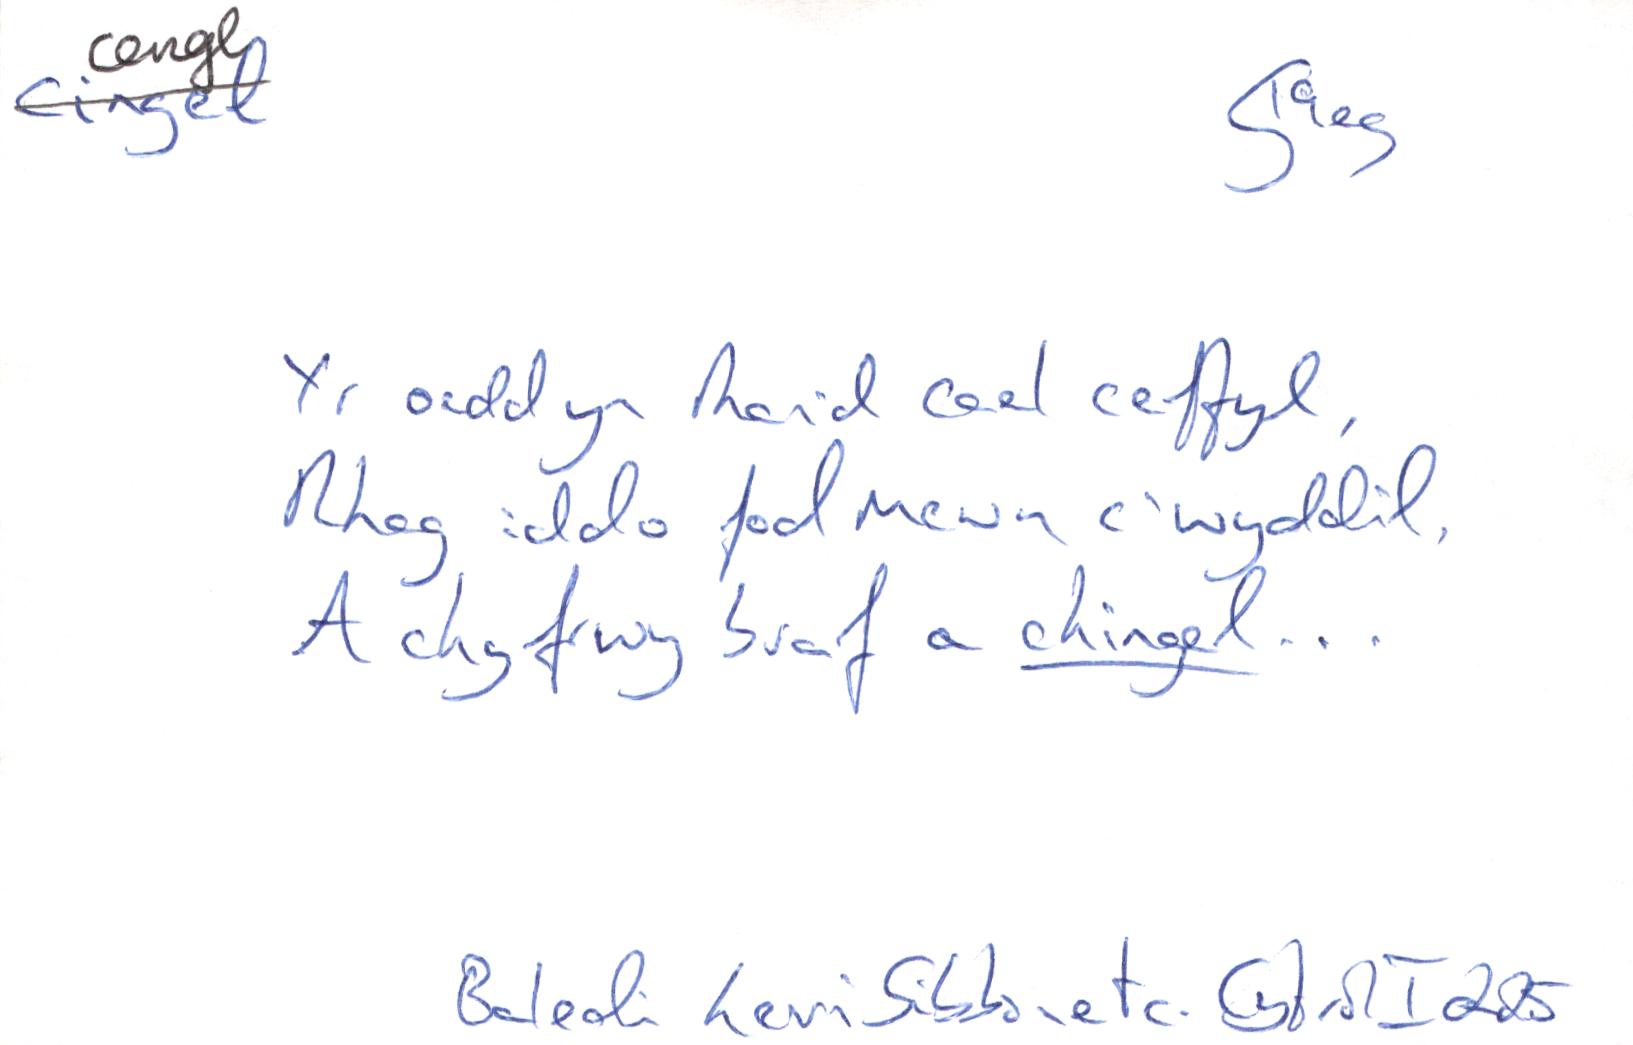 cengl
cingel
Yr oedd yn rhaid cael ceffyl,
Rhag iddo fod mewn c'wyddil,
A chyfrwy braf a chingel...
Baledi Levi Gibbon etc. Cyfrol I 285